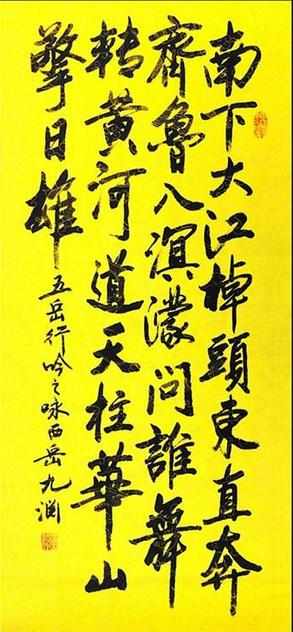 南下大江掉頭東直奔
齊魯入溟濛問誰舞
轉黃河道天柱華山
擎日雄
五岳行吟之咏西岳九渊